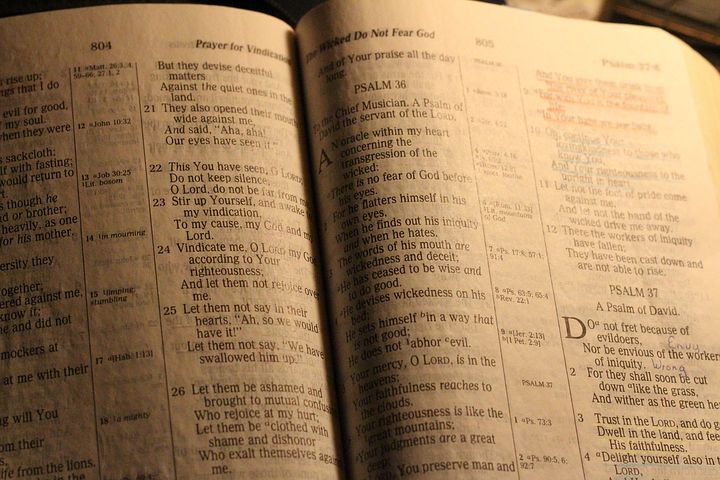 804
Prayer for Vindication
rise up;
things that I do
evil for good,
of my soul.
when they were
sackcloth:
self with fasting;
would return to
as though he
or brother;
heavily, as one
for his mother.
together;
against me,
know it;
and did not
mockers at
at me with their
will You
from their
life from the lions.
11 Matt. 26:3, 4,
59–66; 27:1, 2
12 John 10:32
13 Job 30:25
Lit. bosom
14 in mourning
15 limping,
stumbling
17 [Hab. 1:13]
18 a mighty
But they devise deceitful
matters
Against the quiet ones in the
land.
21 They also opened their mouth
wide against me,
And said, "Aha, aha!
Our eyes have seen it."
22 This You have seen, O LORD;
Do not keep silence.
O Lord, do not be far from me.
23 Stir up Yourself, and awake to
my vindication,
To my cause, my God and my
Lord.
24 Vindicate me, O LORD my God,
according to Your
righteousness;
And let them not rejoice over
me.
25 Let them not say in their
hearts, "Ah, so we would
have it!"
Let them not say, "We have
swallowed him up."
26 Let them be ashamed and
brought to mutual confusion
Who rejoice at my hurt;
Let them be clothed with
shame and dishonor
Who exalt themselves against
me.
The Wicked Do Not Fear God
805
Psalm 37:4
And of Your praise all the day
long.
PSALM 36
To the Chief Musician. A Psalm of
David the servant of the LORD.
AN oracle within my heart
concerning the
transgression of the
wicked:
There is no fear of God before
his eyes.
2 For he flatters himself in his
own eyes,
When he finds out his iniquity
and when he hates.
3 The words of his mouth are
wickedness and deceit;
He has ceased to be wise and
to do good.
4 He devises wickedness on his
bed;
He sets himself in a way that
is not good;
He does not abhor evil.
Your mercy, O LORD, is in the
heavens;
Your faithfulness reaches to
the clouds.
Your righteousness is like the
great mountains;
Your judgments are a great
deep;
O LORD, You preserve man and
7 Ps. 17:8; 57:1;
91:4
8 Ps. 63:5; 65:4
Rev. 22:1
9 [Jer. 2:13]
[1 Pet. 2:9]
PSALM 37
1 Ps. 73:3
2 Ps. 90:5, 6;
92:7
righteousness to the
upright in heart.
11 Let not the foot of pride come
against me,
And let not the hand of the
wicked drive me away.
12 There the workers of iniquity
have fallen;
They have been cast down and
are not able to rise.
PSALM 37
A Psalm of David.
DO not fret because of
evildoers,
Envy
Nor be envious of the workers
of iniquity.
Wrong
2 For they shall soon be cut
down like the grass,
And wither as the green he
3 Trust in the LORD, and do g
Dwell in the land, and fee
His faithfulness.
4 Delight yourself also in t
LORD,